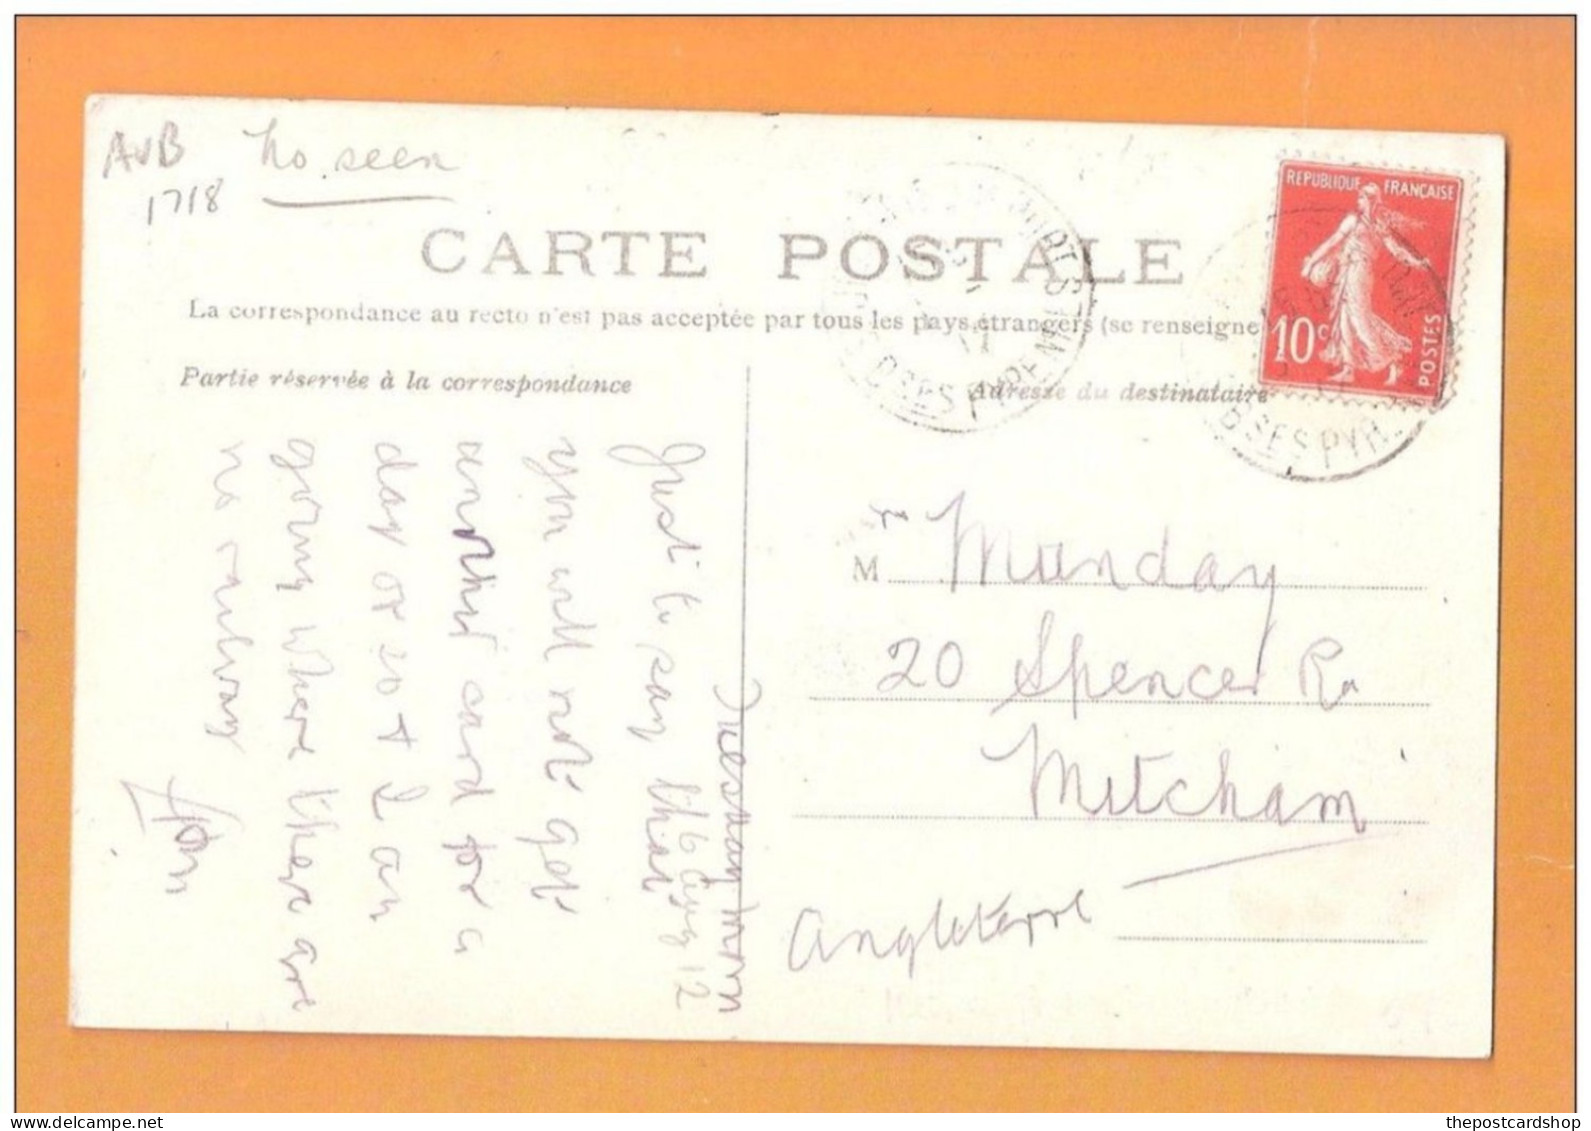 AVB ho seen
1718
CARTE POSTALE
La correspondance au recto n'est pas acceptée par tous les pays étrangers (se renseigne
Partie réservée à la correspondance
Adresse du destinataire
REPUBLIQUE FRANÇAISE
10c
POSTES
BSES PYR
BSES PYRENEES
Tuesday morn
6 Aug 12
Just to say that
you will not get
another card for a
day or so + I am
going where there are
no railway
M
Munday
20 Spencer Rd
Mitcham
Angleterre
thepostcardshop